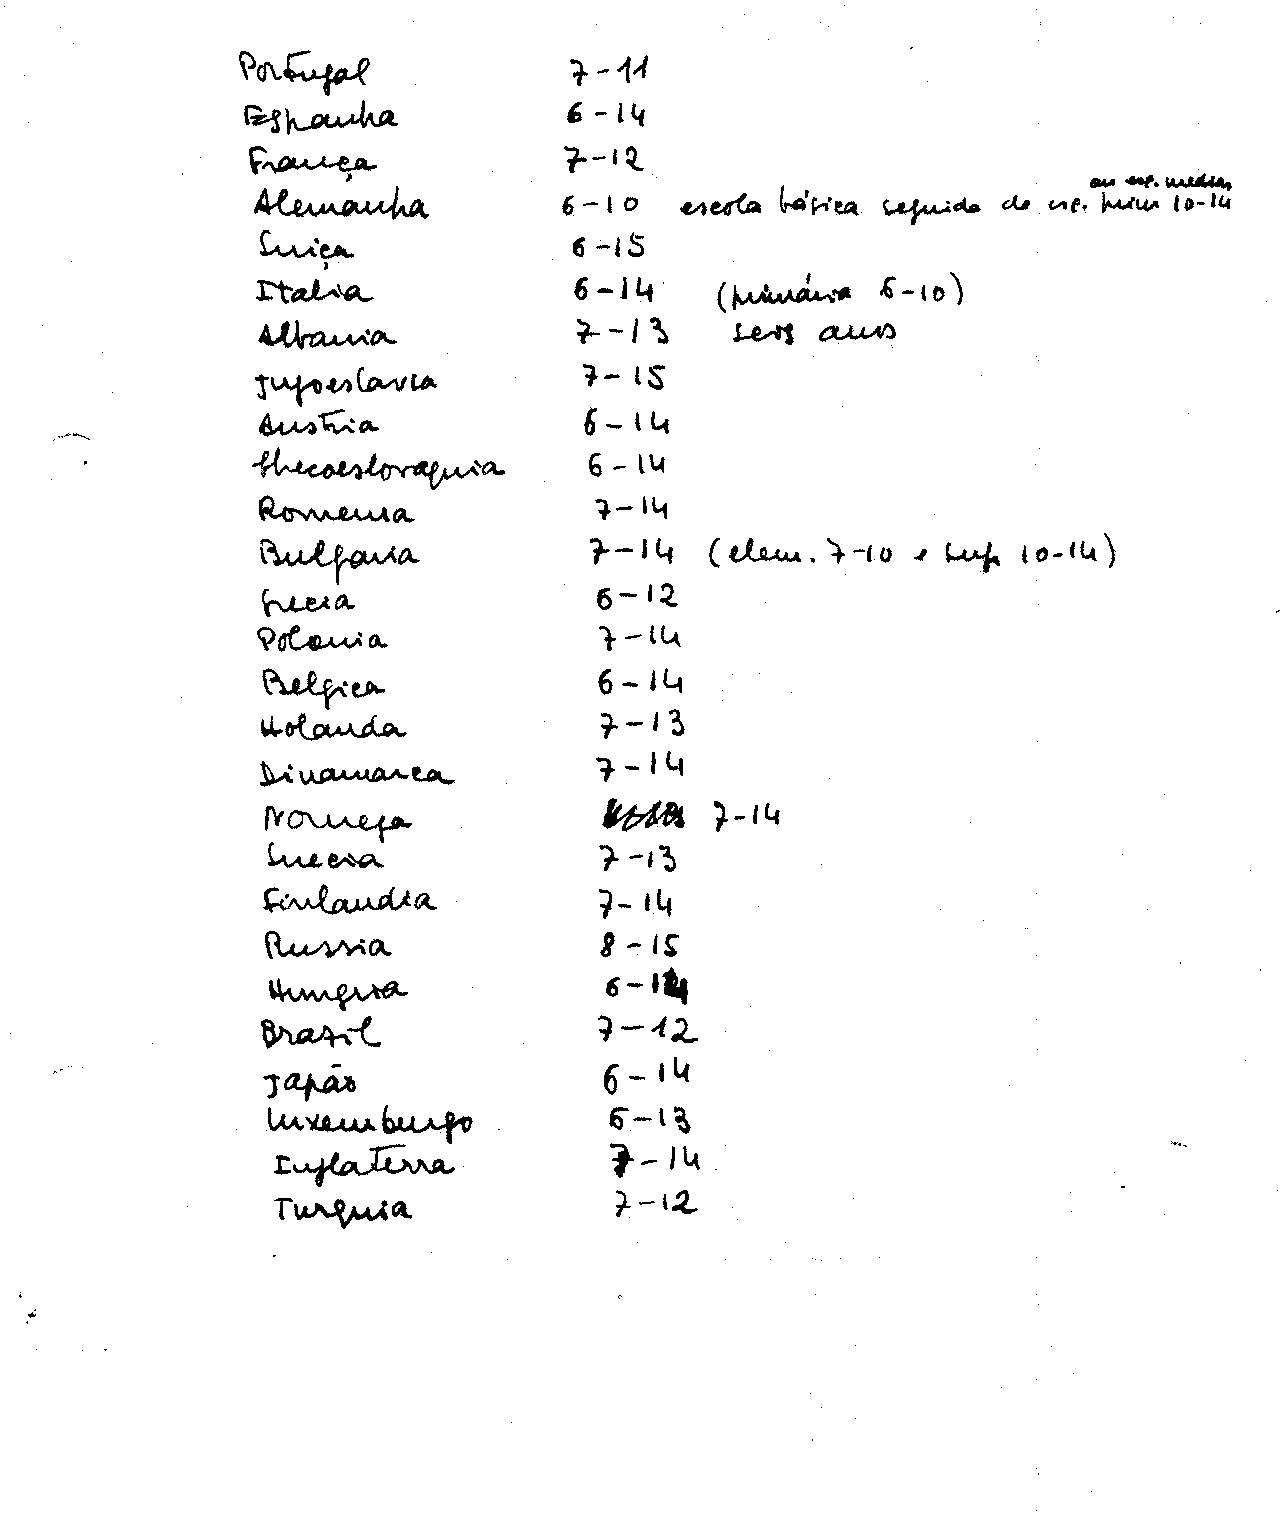 Portugal 7-11
Espanha 6-14
França 7-12
ou esc. médias
Alemanha 6-10 escola básica seguida de esc. prim 10-14
Suiça 6-15
Italia 6-14 (primária 6-10)
Albania 7-13 seis anos
Jugoeslavia 7-15
Austria 6-14
Checoeslovaquia 6-14
Romenia 7-14
Bulgaria 7-14 (elem. 7-10 e sup. 10-14)
Grecia 6-12
Polonia 7-14
Belgica 6-14
Holanda 7-13
Dinamarca 7-14
Noruega 7-14
Suecia 7-13
Finlandia 7-14
Russia 8-15
Hungria 6-14
Brazil 7-12
Japão 6-14
Luxemburgo 6-13
Inglaterra 7-14
Turquia 7-12